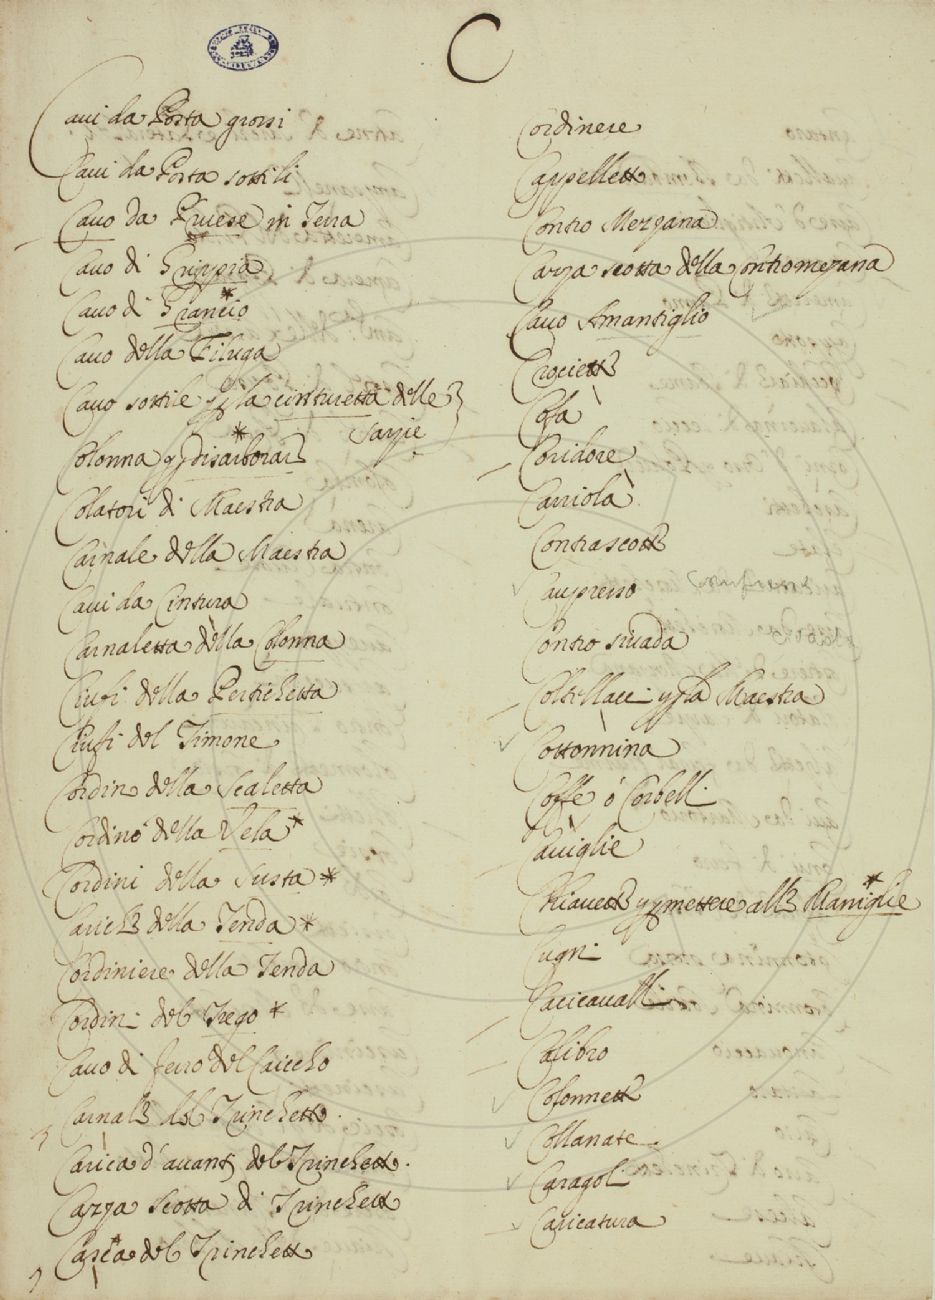 C
Caui da Posta grossi
Caui da Posta sottili
Cauo da Pruese in Terra
Cauo di Grippia
Cauo di Grancio
Cauo della Filuga
Cauo sottile p la cinturetta delle
Sarzie
Colonna p disarborar
Colatori di Maestra
Carnale della Maestra
Caui da Cintura
Carnaletta della Colonna
Ciufi della Pertichetta
Ciufi del Timone
Cordin della Scaletta
Cordino della Vela
Cordini della Susta
Cariche della Tenda
Cordiniere della Tenda
Cordin del Trego
Cauo di ferro del Caiccho
Carnale del Trinchetto
Carica d'auanti del Trinchetto
Cazza Scotta di Trinchetto
Carica del Trinchetto
Cordinere
Cappellette
Contro Mezzana
Cazza scotta della Contromezana
Cauo Amantiglio
Crociette
Cofa
Coridore
Carriola
Contrascotte
Caupresso
Contro siuada
Coltellacci p la Maestra
Cottonnina
Coffe ó Corbelli
Cauiglie
Chiauette p mettere alle Maniglie
Cugni
Cacicaualli
Calibro
Colonnette
Collanate
Caragoli
Caricatura